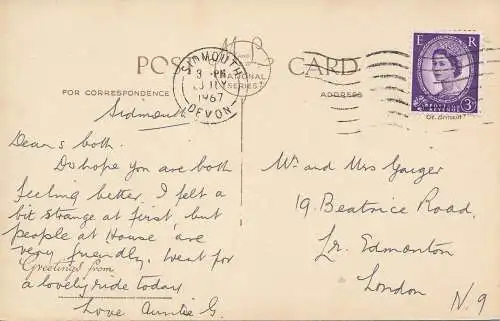 POST CARD
M B
NATIONAL
SERIES
SIDMOUTH
3 PM
JLY
1967
DEVON
E R
POSTAGE REVENUE
3D
FOR CORRESPONDENCE
ADDRESS
Gt. Britain
Sidmouth
Dear s both.
Do hope you are both
feeling better. I felt a
bit strange at first, but
people at House are
very friendly. Went for
Greetings from
a lovely ride today.
Love Auntie G.
Mr and Mrs Gauger
19. Beatrice Road,
Lr. Edmonton
London
N. 9